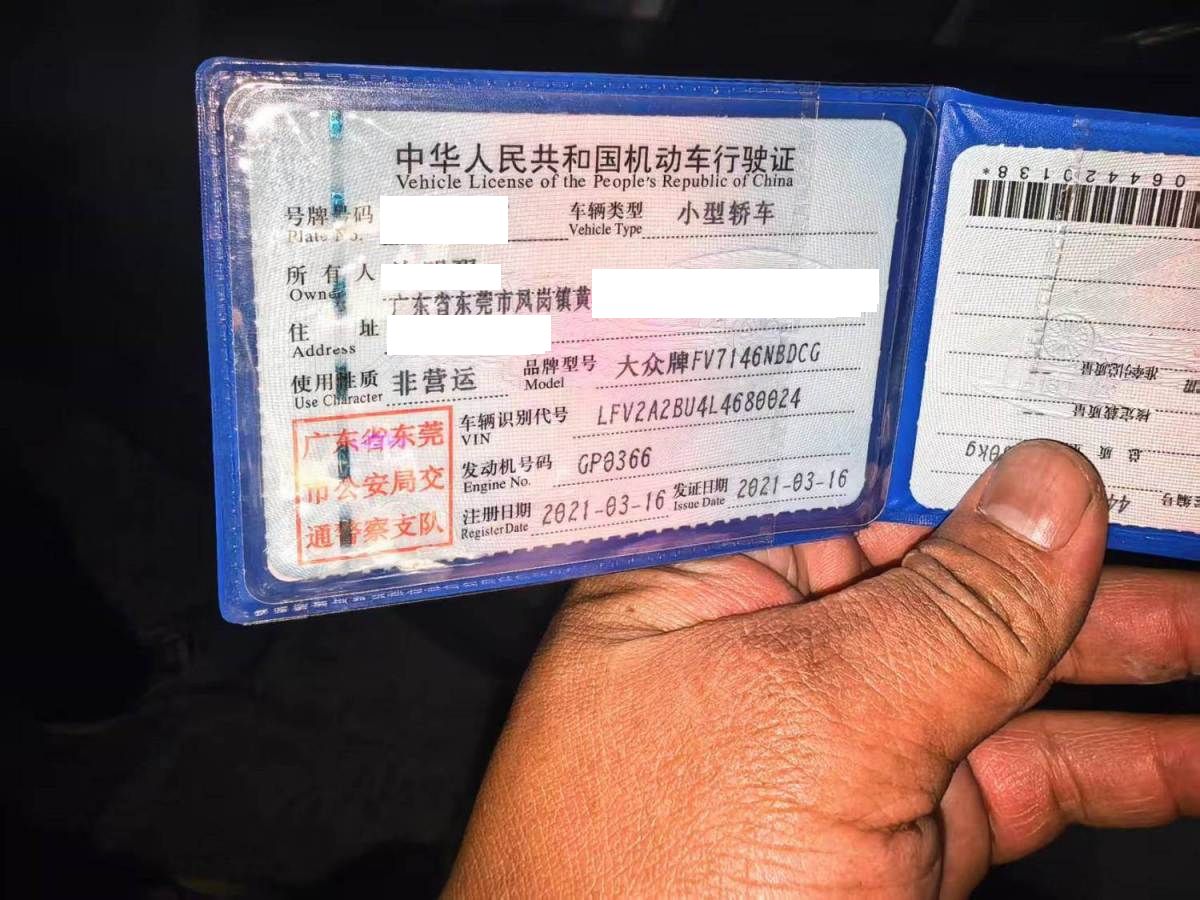 中华人民共和国机动车行驶证
Vehicle License of the People's Republic of China
号牌号码 车辆类型 小型轿车
Plate No. Vehicle Type
所有人
Owner
广东省东莞市凤岗镇黄
住址
Address
使用性质 非营运 品牌型号 大众牌FV7146NBDCG
Use Character Model
车辆识别代号 LFV2A2BU4L4680024
VIN
发动机号码 GP0366
Engine No.
注册日期 2021-03-16 发证日期 2021-03-16
Register Date Issue Date
广东省东莞
市公安局交
通警察支队
064420138*
准牵引总质量
核定载质量
总质量 0kg
编号 44